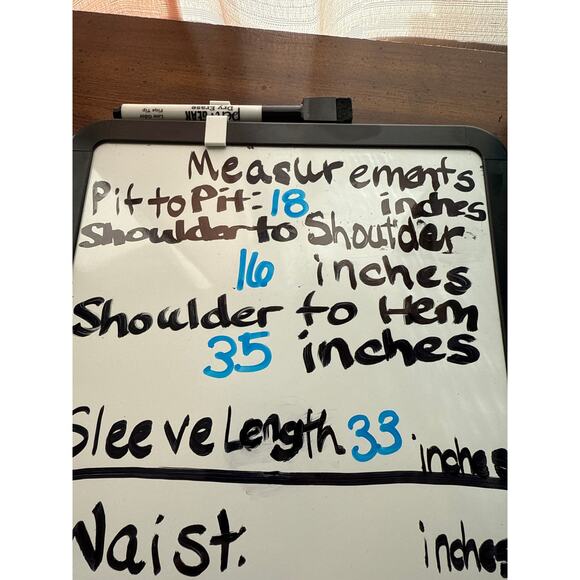 Dry Erase
Low Odor
Fine Tip
Measurements
Pit to Pit: 18 inches
Shoulder to Shoulder
16 inches
Shoulder to Hem
35 inches
Sleeve Length 33 inches
Waist: inches